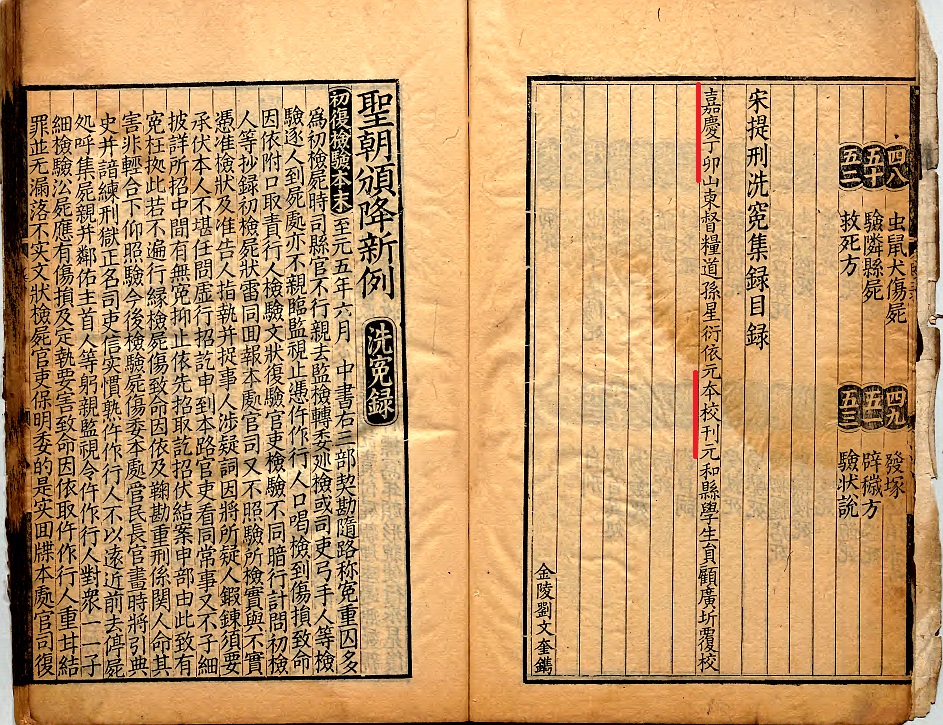 四八 虫鼠犬傷屍 四九 發塚
五十 驗隣縣屍 五一 辟穢方
五二 救死方 五三 驗狀說
宋提刑洗冤集録目録
嘉慶丁卯山東督糧道孫星衍依元本校刊元和縣學生員顧廣圻覆校
金陵劉文奎鐫
聖朝頒降新例 洗冤録
初復檢驗本末 至元五年六月 中書右三部契勘隨路称冤重囚多
為初檢屍時司縣官不行親去監檢轉委廵檢或司吏弓手人等檢
驗逐人到屍處亦不親臨監視止憑仵作行人口唱檢到傷損致命
因依附口取責行人檢驗文狀復驗官吏檢驗不同暗行計問初檢
人等抄録初檢屍狀雷同囬報本處官司又不照驗所檢實與不實
憑准檢狀及准告人指執并捉事人涉疑詞因將所疑人鍜鍊須要
承伏本人不堪任問虛行招訖申到本路官吏看同常事又不子細
披詳所招中間有無冤抑止依先招取訖招伏結案申部由此致有
冤枉拠此若不遍行縁檢屍傷致命因依及鞠勘重刑係関人命其
害非輕合下仰照驗今後檢驗屍傷委本處管民長官畫時將引典
史并諳練刑獄正名司吏信实慣熟仵作行人不以遠近前去停屍
処呼集屍親并鄰佑主首人等躬親監視令仵作行人對衆一一子
細檢驗沿屍應有傷損及定執要害致命因依取仵作行人重甘結
罪並无漏落不实文狀檢屍官吏保明委的是实囬牒本處官司復